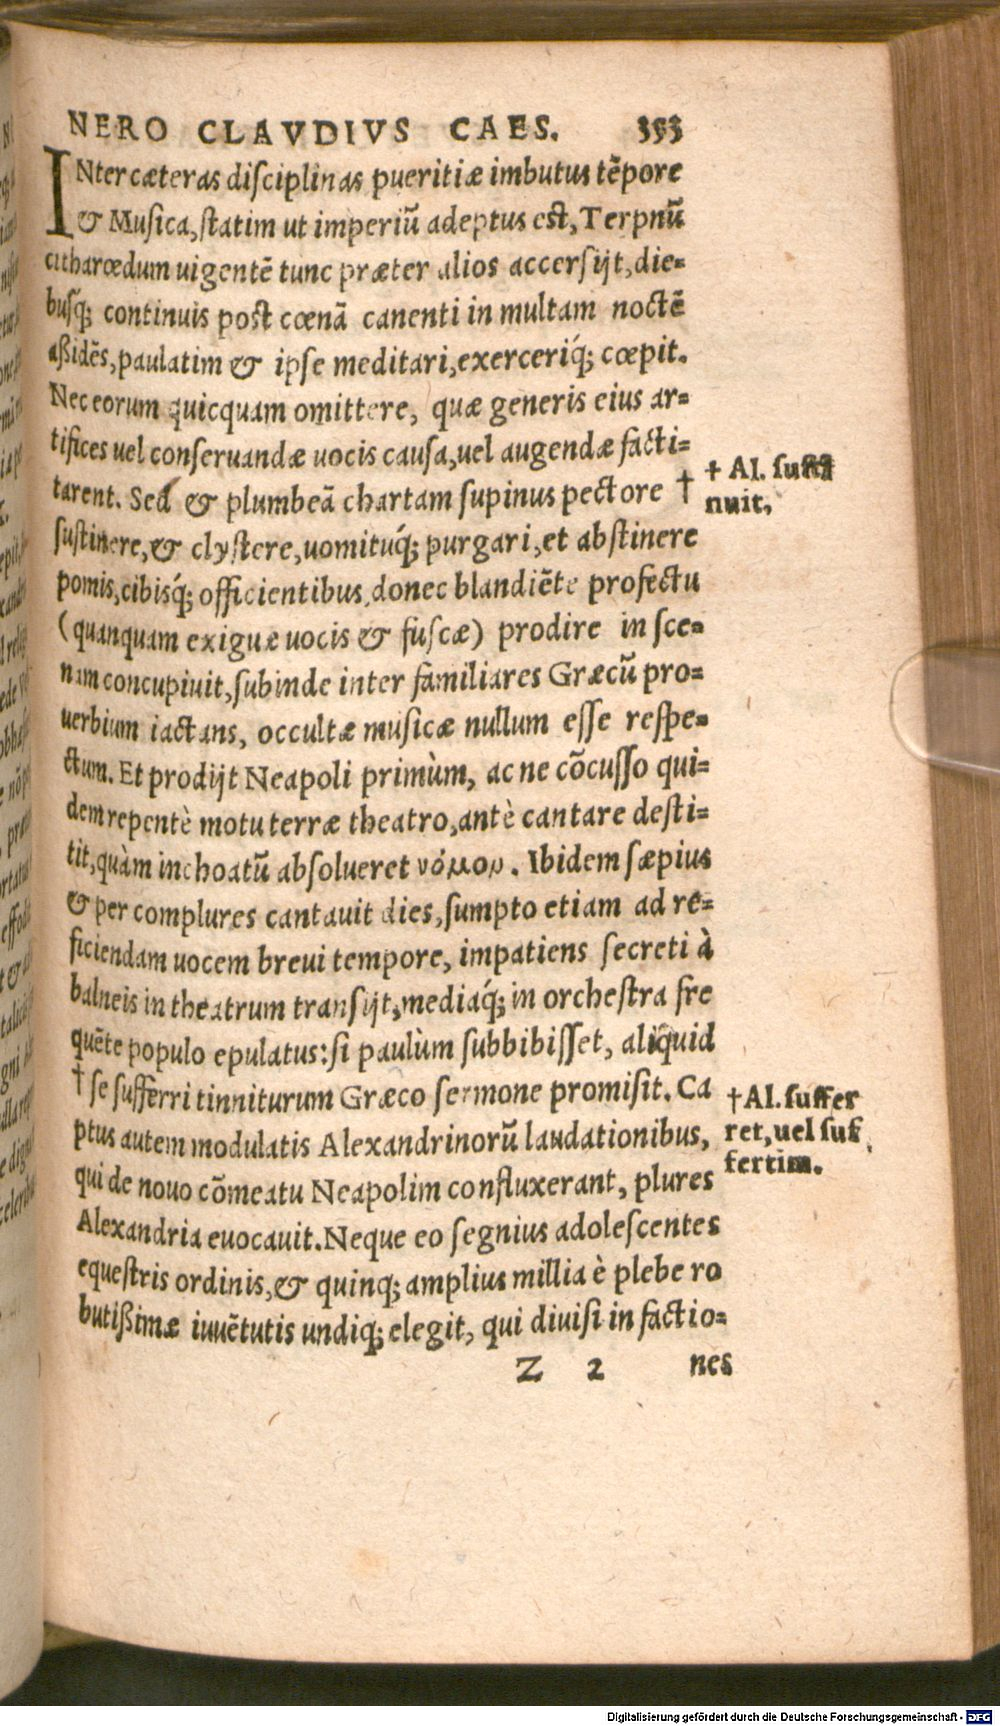 NERO CLAVDIVS CAES. 353
INter cæteras disciplinas pueritiæ imbutus tẽpore
& Musica, statim ut imperiũ adeptus est, Terpnũ
citharœdum uigentẽ tunc præter alios accersijt, die=
busq́; continuis post cœnã canenti in multam noctẽ
aßidẽs, paulatim & ipse meditari, exerceriq́; cœpit.
Nec eorum quicquam omittere, quæ generis eius ar=
tifices uel conseruandæ uocis causa, uel augendæ facti=
tarent. Sed & plumbeã chartam supinus pectore †
sustinere, & clystere, uomituq́; purgari, et abstinere
pomis, cibisq́; officientibus, donec blandiẽte profectu
(quanquam exiguæ uocis & fuscæ) prodire in sce=
nam concupiuit, subinde inter familiares Græcũ pro=
uerbium iactans, occultæ musicæ nullum esse respe=
ctum. Et prodijt Neapoli primùm, ac ne cõcusso qui=
dem repentè motu terræ theatro, antè cantare desti=
tit, quàm inchoatũ absolueret νόμον. Ibidem sæpius
& per complures cantauit dies, sumpto etiam ad re=
ficiendam uocem breui tempore, impatiens secreti à
balneis in theatrum transijt, mediaq́; in orchestra fre
quẽte populo epulatus: si paulùm subbibisset, aliquid
† se sufferri tinniturum Græco sermone promisit. Ca
ptus autem modulatis Alexandrinorũ laudationibus,
qui de nouo cõmeatu Neapolim confluxerant, plures
Alexandria euocauit. Neque eo segnius adolescentes
equestris ordinis, & quinq; amplius millia è plebe ro
butißimæ iuuẽtutis undiq; elegit, qui diuisi in factio=
Z 2 nes
† Al. susti
nuit.
† Al. suffer
ret, uel suf
fertim.
Digitalisierung gefördert durch die Deutsche Forschungsgemeinschaft - DFG